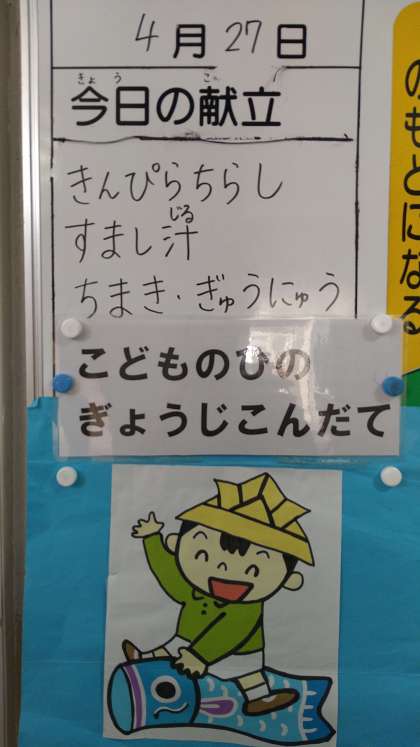 4月27日
きょう
今日の献立
きんぴらちらし
じる
すまし汁
ちまき・ぎゅうにゅう
こどものひの
ぎょうじこんだて
のもとになる